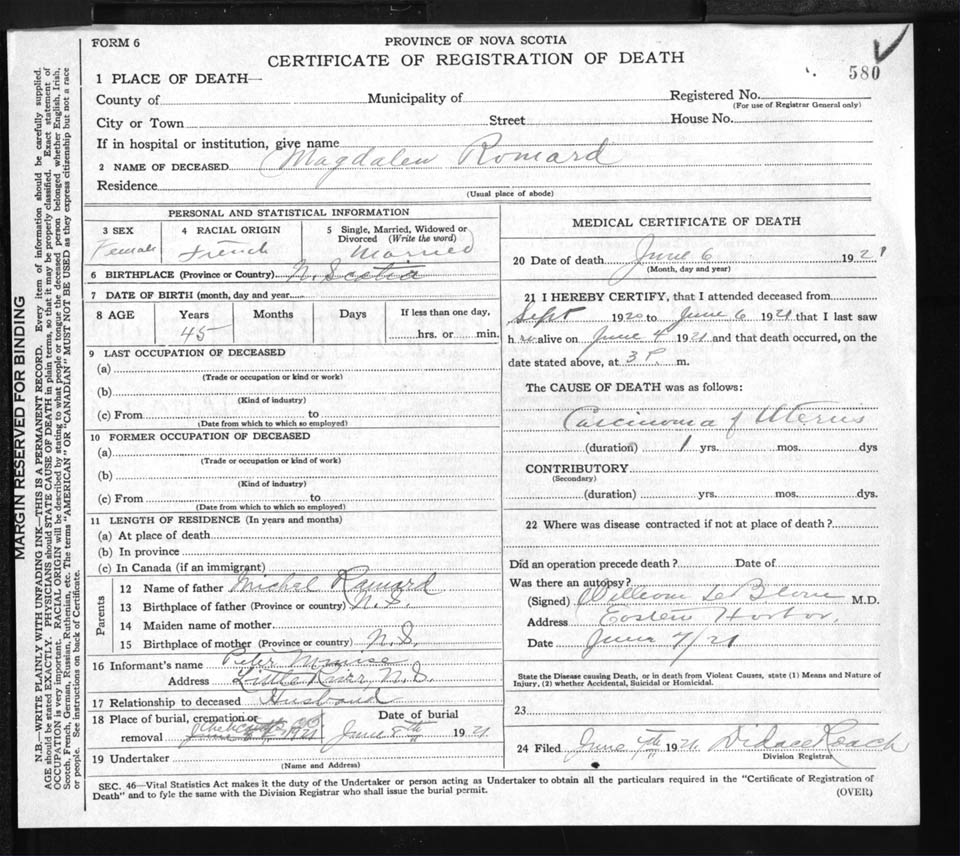 FORM 6
PROVINCE OF NOVA SCOTIA
CERTIFICATE OF REGISTRATION OF DEATH
580
1 PLACE OF DEATH—
County of Municipality of Registered No.
(For use of Registrar General only)
City or Town Street House No.
If in hospital or institution, give name
2 NAME OF DECEASED Magdalen Romard
Residence
(Usual place of abode)
PERSONAL AND STATISTICAL INFORMATION
3 SEX Female
4 RACIAL ORIGIN French
5 Single, Married, Widowed or Divorced (Write the word) Married
6 BIRTHPLACE (Province or Country) N. Scotia
7 DATE OF BIRTH (month, day and year)
8 AGE Years Months Days If less than one day,
45 hrs. or min.
9 LAST OCCUPATION OF DECEASED
(a)
(Trade or occupation or kind or work)
(b)
(Kind of industry)
(c) From to
(Date from which to which so employed)
10 FORMER OCCUPATION OF DECEASED
(a)
(Trade or occupation or kind of work)
(b)
(Kind of industry)
(c) From to
(Date from which to which so employed)
11 LENGTH OF RESIDENCE (In years and months)
(a) At place of death
(b) In province
(c) In Canada (if an immigrant)
Parents
12 Name of father Michel Romard
13 Birthplace of father (Province or country) N.S.
14 Maiden name of mother
15 Birthplace of mother (Province or country) N.S.
16 Informant's name Peter
Address Little River N.S.
17 Relationship to deceased Husband
18 Place of burial, cremation or Date of burial
removal June 8th 1921
19 Undertaker
(Name and Address)
MEDICAL CERTIFICATE OF DEATH
20 Date of death June 6 1921
(Month, day and year)
21 I HEREBY CERTIFY, that I attended deceased from
Sept 1920 to June 6 1921 that I last saw
her alive on June 4 1921 and that death occurred, on the
date stated above, at 3 P. m.
The CAUSE OF DEATH was as follows:
Carcinoma of Uterus
(duration) 1 yrs. mos. dys
CONTRIBUTORY
(Secondary)
(duration) yrs. mos. dys.
22 Where was disease contracted if not at place of death?
Did an operation precede death? Date of
Was there an autopsy?
(Signed) William LeBlanc M.D.
Address Eastern Harbor,
Date June 7/21
State the Disease causing Death, or in death from Violent Causes, state (1) Means and Nature of
Injury, (2) whether Accidental, Suicidal or Homicidal.
23
24 Filed June 7th 1921
Division Registrar
SEC. 46—Vital Statistics Act makes it the duty of the Undertaker or person acting as Undertaker to obtain all the particulars required in the "Certificate of Registration of
Death" and to fyle the same with the Division Registrar who shall issue the burial permit.
(OVER)
MARGIN RESERVED FOR BINDING
N.B.—WRITE PLAINLY WITH UNFADING INK—THIS IS A PERMANENT RECORD. Every item of information should be carefully supplied.
AGE should be stated EXACTLY. PHYSICIANS should STATE CAUSE OF DEATH in plain terms, so that it may be properly classified. Exact statement of
OCCUPATION is very important. RACIAL ORIGIN will be described by stating to what people or tongue the deceased person belonged whether English, Irish,
Scotch, French, German, Russian, Ruthenian, etc. The terms "AMERICAN" OR "CANADIAN" MUST NOT BE USED as they express citizenship but not a race
or people. See instructions on back of Certificate.